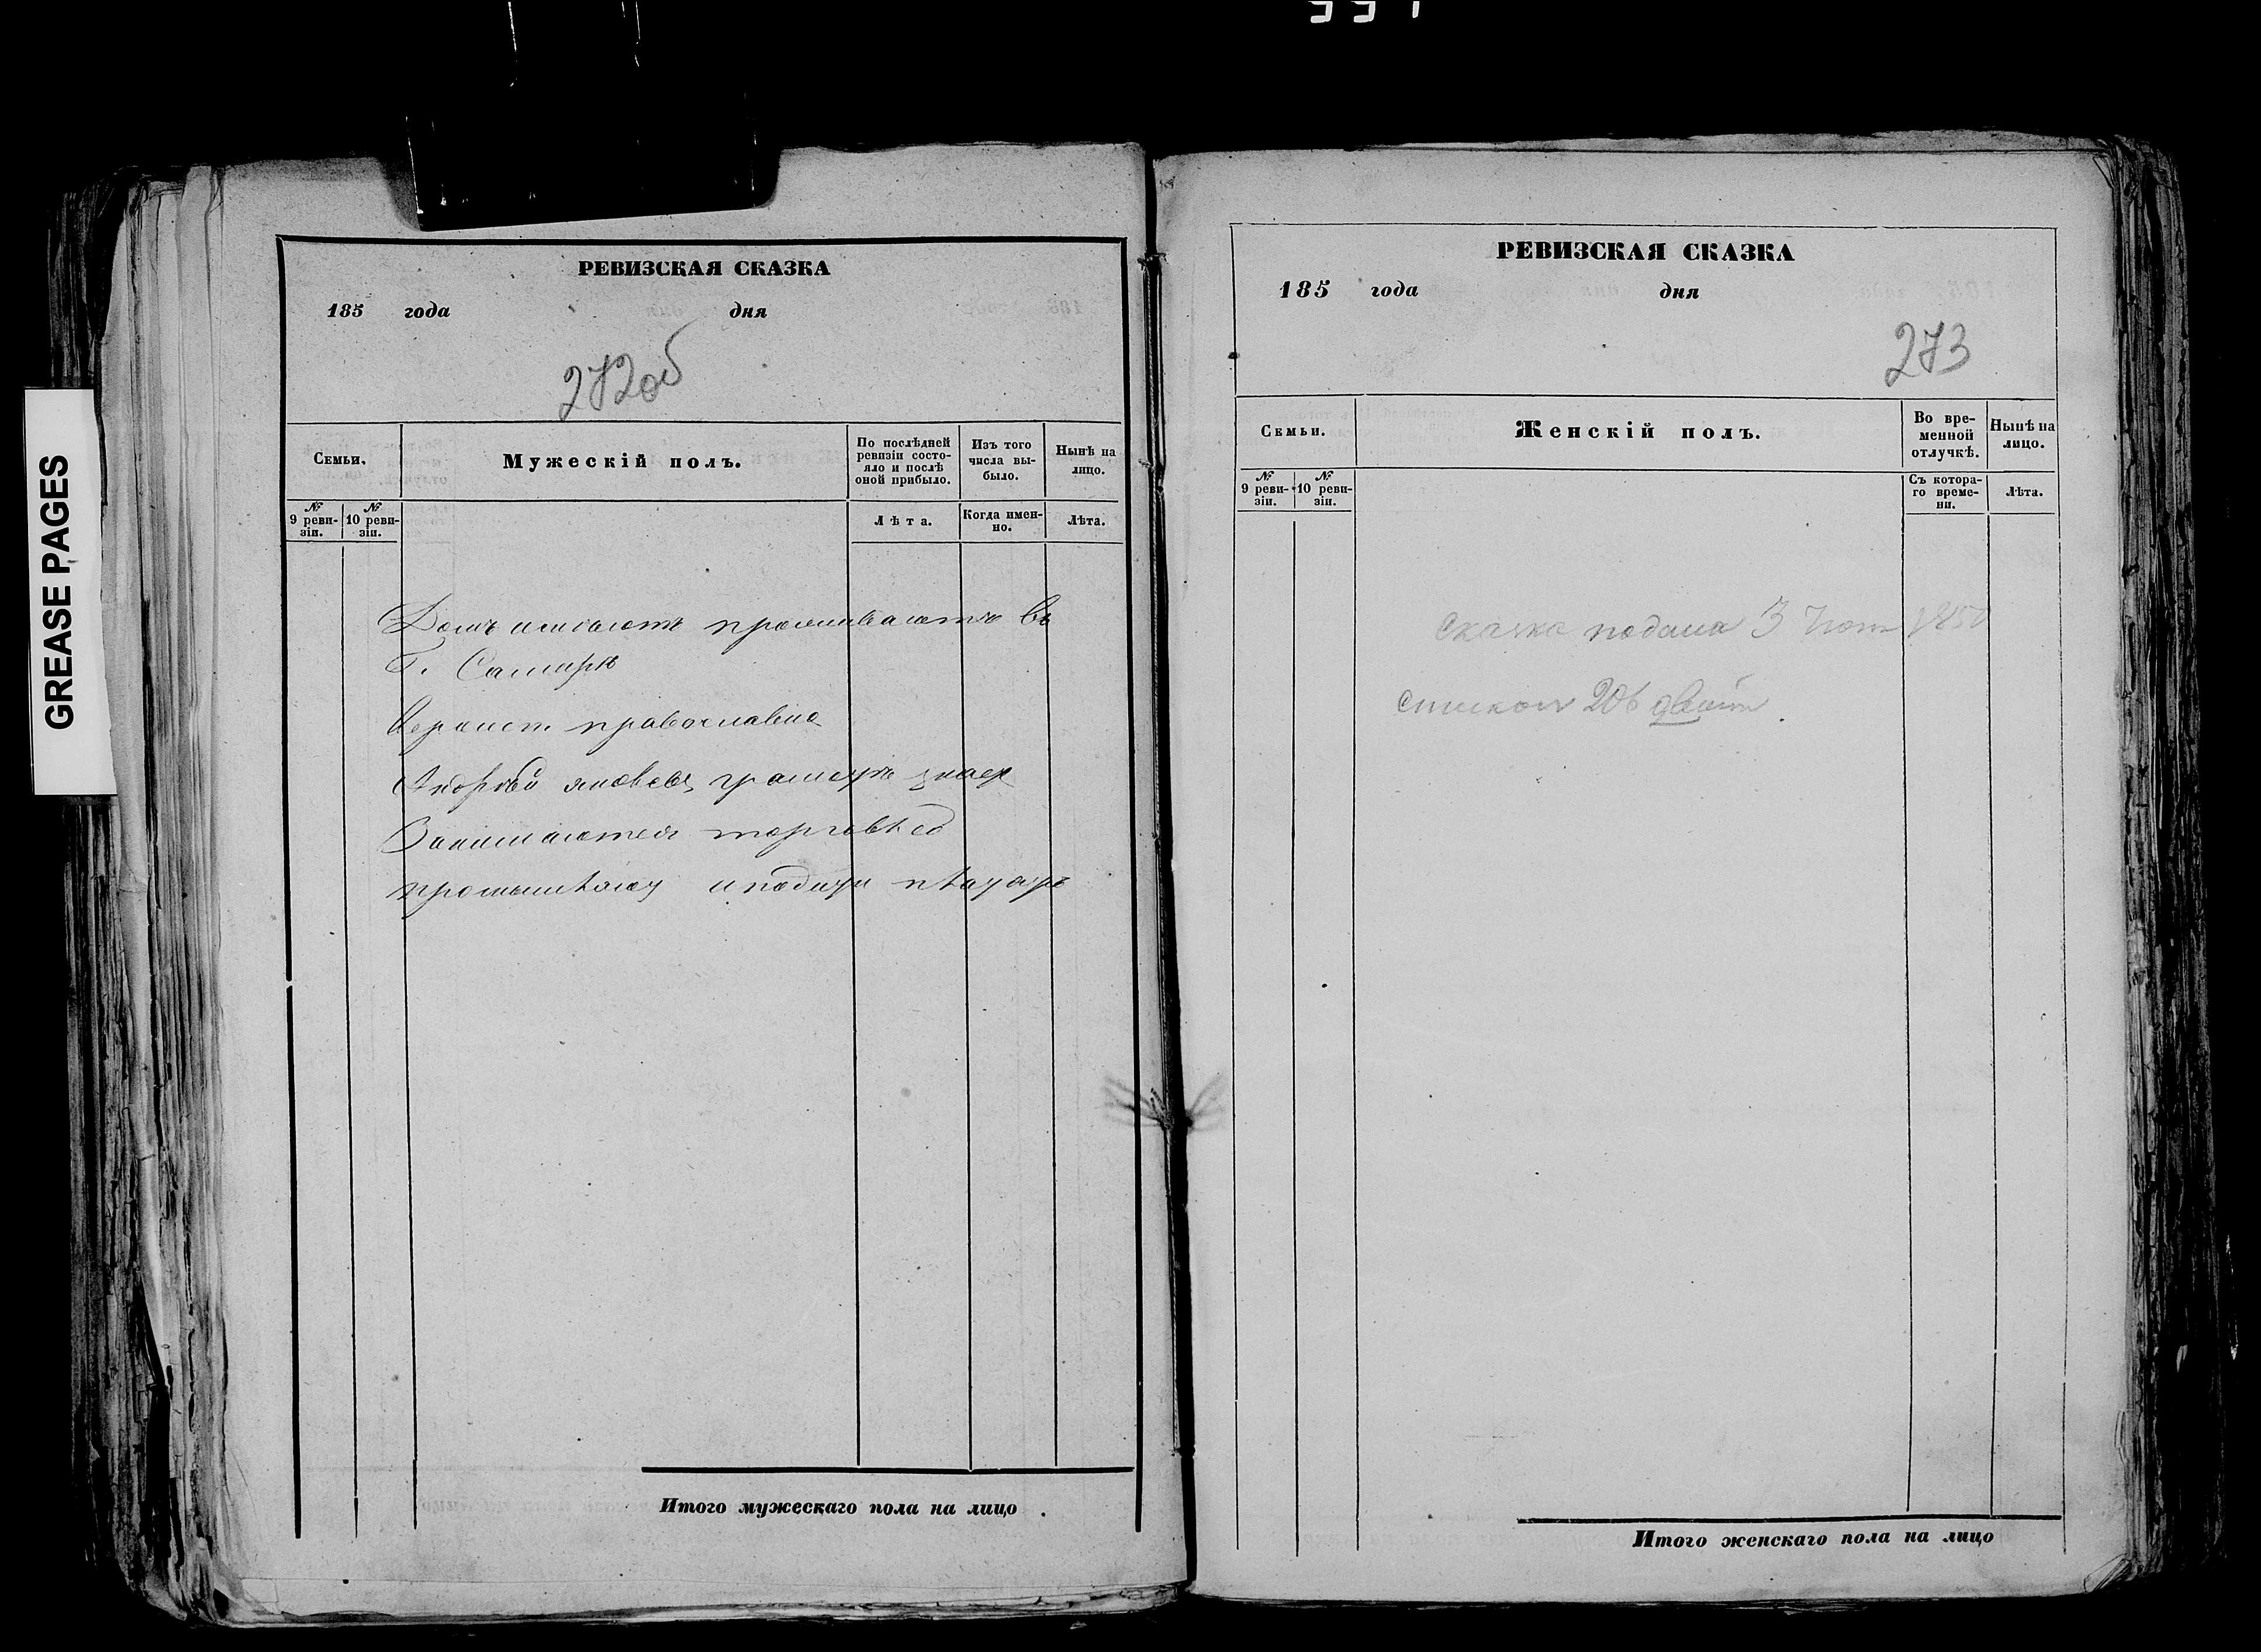 GREASE PAGES
РЕВИЗСКАЯ СКАЗКА
185 года дня
272об
Семьи.
Мужескій полъ.
По послѣдней ревизіи состо-
яло и послѣ
оной прибыло.
Изъ того
числа вы-
было.
Нынѣ на
лицо.
№
9 реви-
зіи.
№
10 реви-
зіи.
Лѣта.
Когда имен-
но.
Лѣта.
Домъ имѣютъ проживаютъ въ
Г. Самарѣ
православна
Андрей Яковлевъ грамотѣ знает
Занимаются торговлею
Итого мужескаго пола на лицо
РЕВИЗСКАЯ СКАЗКА
185 года дня
273
Семьи.
Женскій полъ.
Во вре-
менной
отлучкѣ.
Нынѣ на
лицо.
№
9 реви-
зіи.
№
10 реви-
зіи.
Съ котора-
го време-
ни.
Лѣта.
Сказка подана 3
Итого женскаго пола на лицо